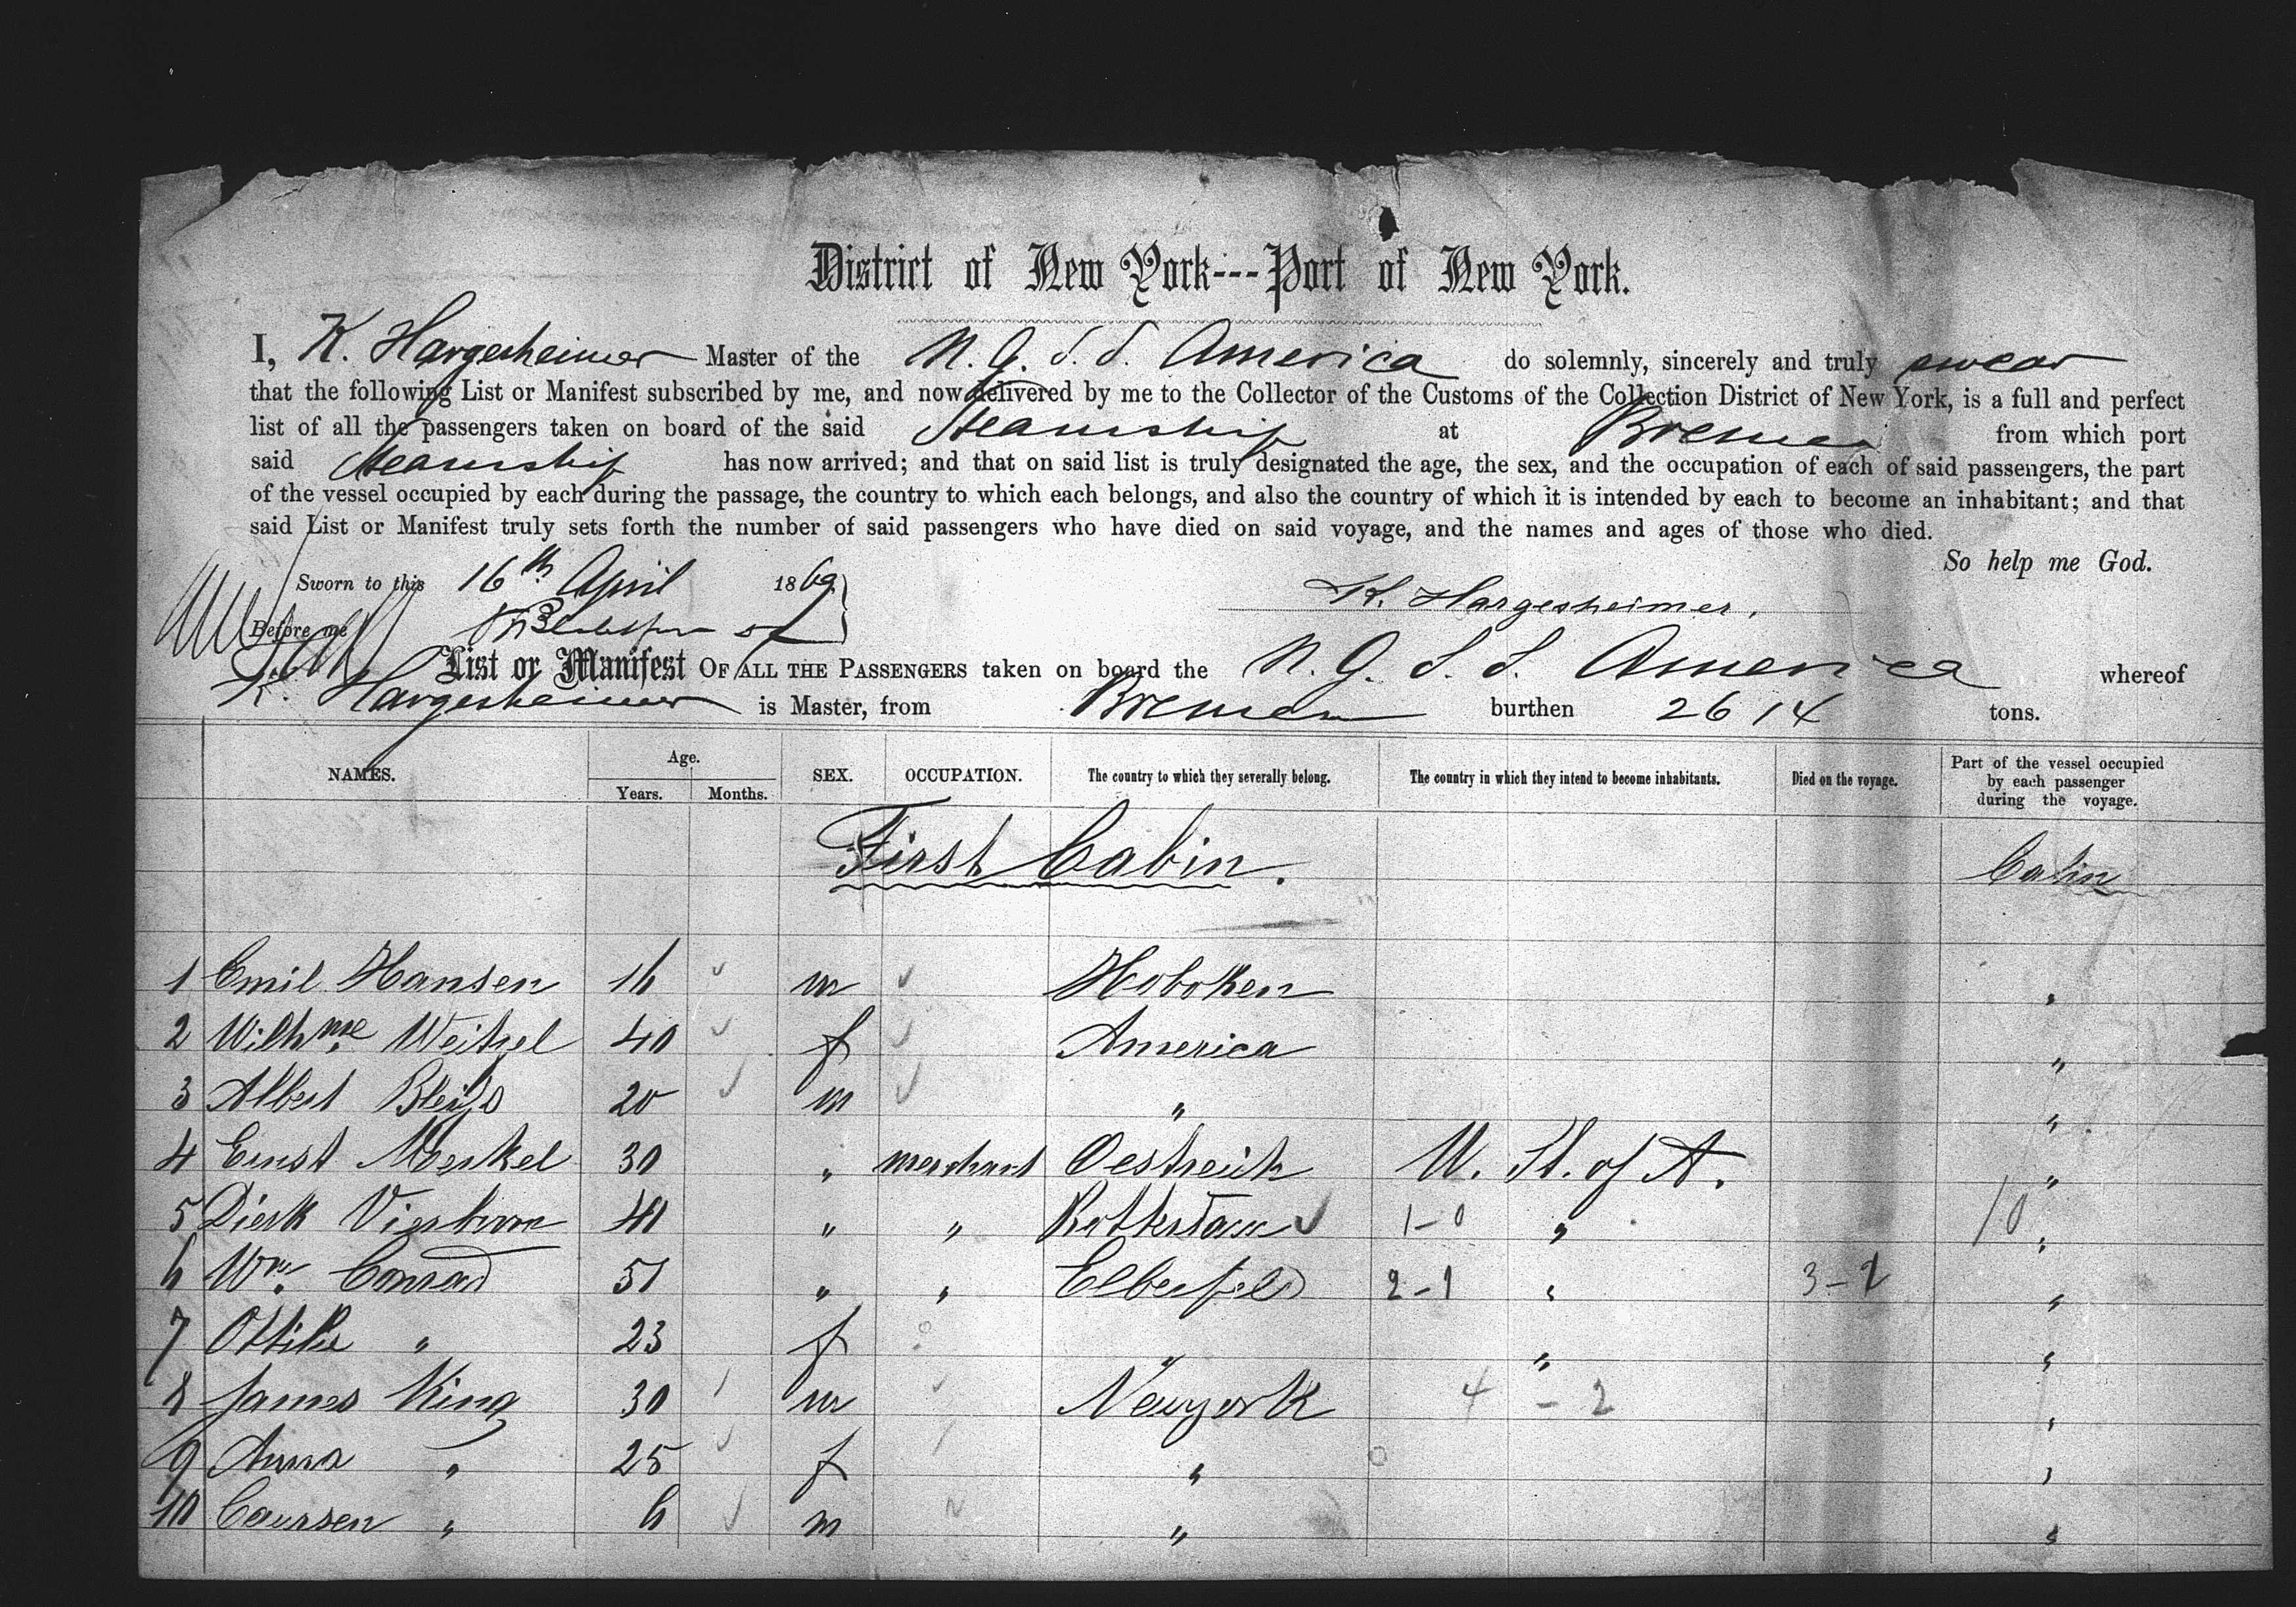 District of New York---Port of New York.
I, K. Hargesheimer Master of the N. G. S. S. America do solemnly, sincerely and truly swear
that the following List or Manifest subscribed by me, and now delivered by me to the Collector of the Customs of the Collection District of New York, is a full and perfect
list of all the passengers taken on board of the said Steamship at Bremen from which port
said Steamship has now arrived; and that on said list is truly designated the age, the sex, and the occupation of each of said passengers, the part
of the vessel occupied by each during the passage, the country to which each belongs, and also the country of which it is intended by each to become an inhabitant; and that
said List or Manifest truly sets forth the number of said passengers who have died on said voyage, and the names and ages of those who died.
So help me God.
Sworn to this 16th April 1869
K. Hargesheimer.
Before me
List or Manifest OF ALL THE PASSENGERS taken on board the N. G. S. S. America whereof
K. Hargesheimer is Master, from Bremen burthen 2614 tons.
NAMES. Age. Years. Months. SEX. OCCUPATION. The country to which they severally belong. The country in which they intend to become inhabitants. Died on the voyage. Part of the vessel occupied by each passenger during the voyage.
First Cabin. Cabin
1 Emil Hansen 16 m Hoboken "
2 Wilhme Weitzel 40 f America "
3 Albert 20 m " "
4 Ernst Merkel 30 " merchant Oestreich U. St. of A. "
5 Dierk 41 " " 1-0 " 10 "
6 Wm. Conrad 51 " " Elberfeld 2-1 " 3-2 "
7 Ottilie " 23 f " " "
8 James King 30 m Newyork 4 - 2 "
9 Anna " 25 f " "
10 Coursen " 6 m " "